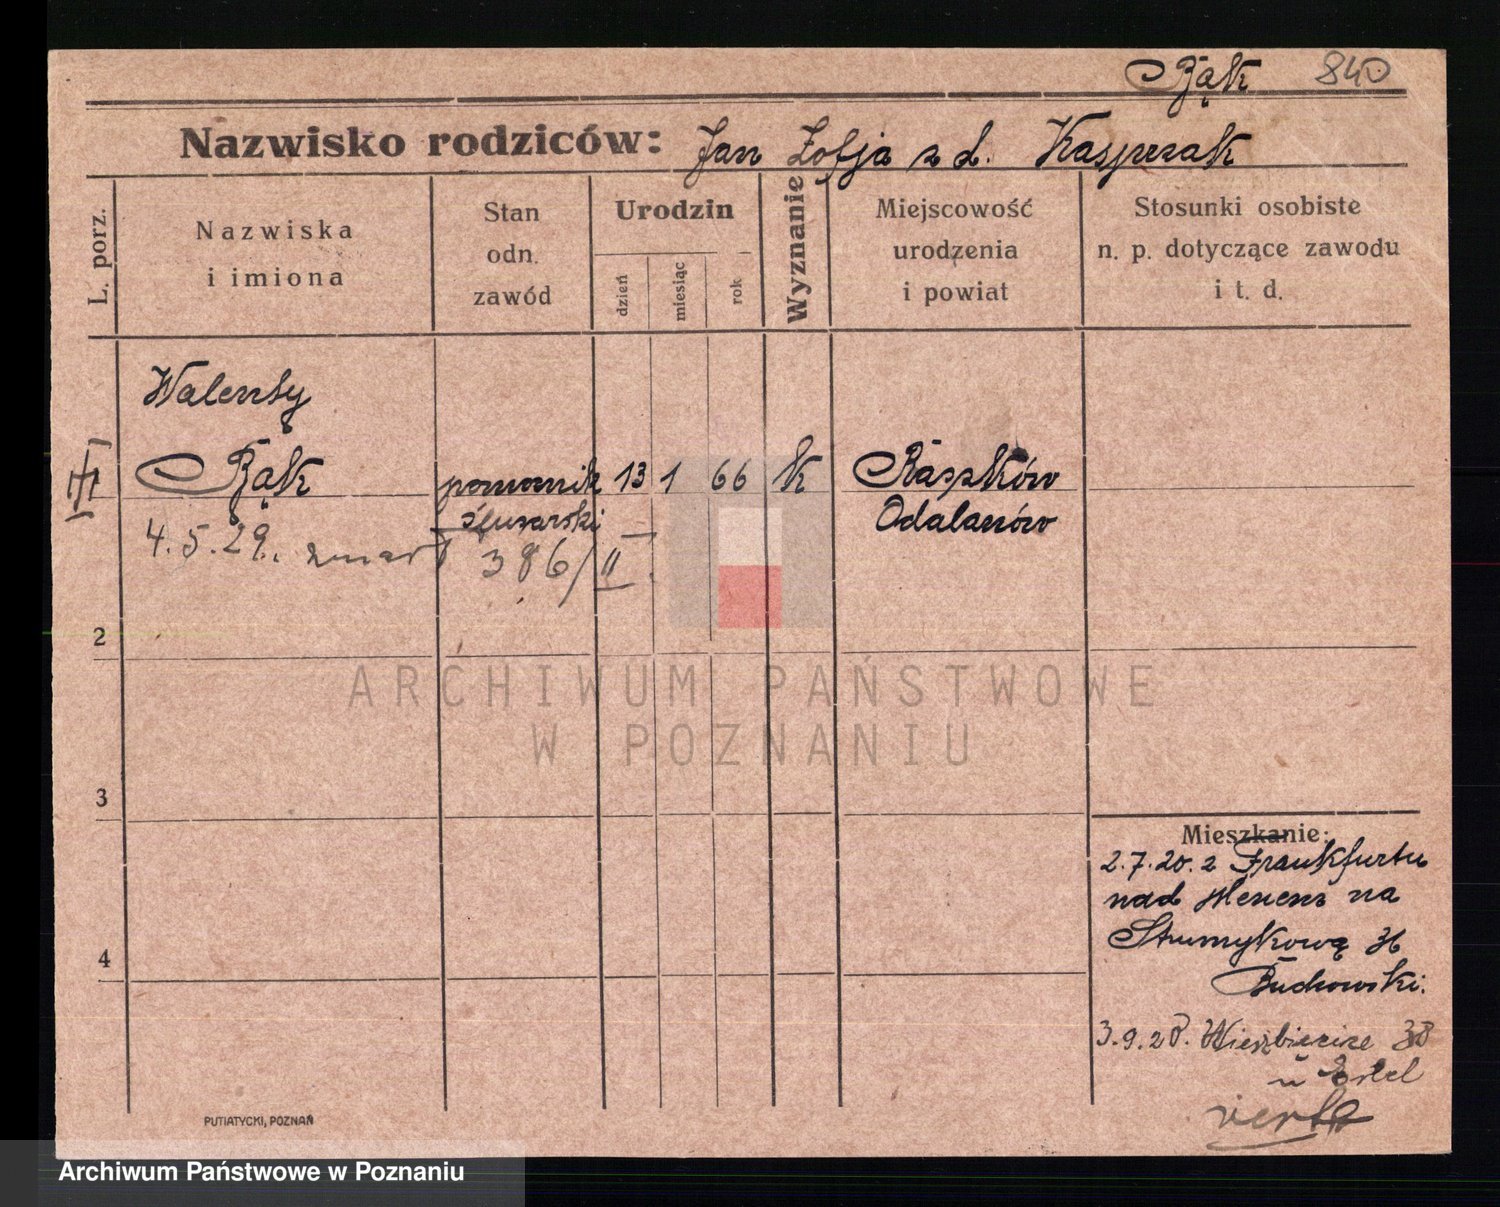 Bąk 840
Nazwisko rodziców: Jan Zofja z d. Kasprzak
L. porz.
Nazwiska
i imiona
Stan
odn.
zawód
Urodzin
dzień
miesiąc
rok
Wyznanie
Miejscowość
urodzenia
i powiat
Stosunki osobiste
n. p. dotyczące zawodu
i t. d.
Walenty
Bąk pomocnik 13 1 66 k Raszków
ślusarski Odalanów
4.5.29. zmarł 386/II
2
3
4
Mieszkanie:
2.7.20. z Frankfurtu
nad Menem na
Strumykową 36
Buckowski.
3.9.28. Wierzbięcice 38
u
verte
PUTIATYCKI, POZNAŃ
ARCHIWUM PAŃSTWOWE
W POZNANIU
Archiwum Państwowe w Poznaniu